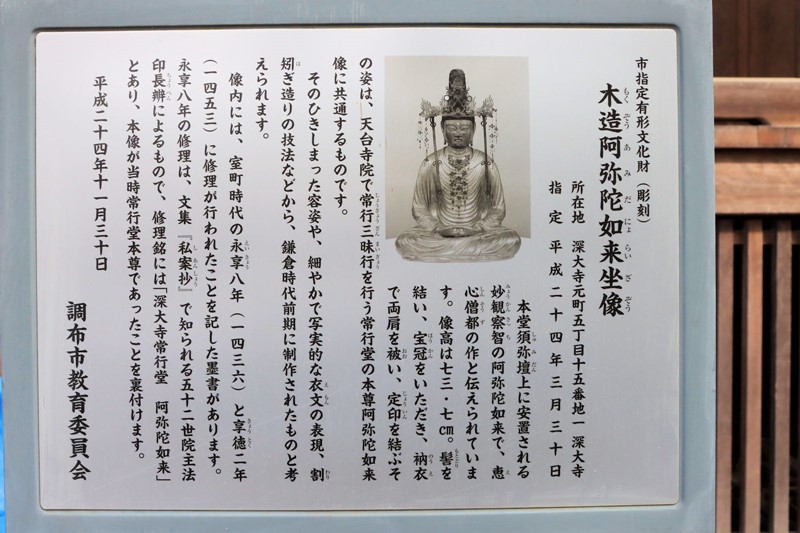 市指定有形文化財（彫刻）
木造阿弥陀如来坐像
もくぞうあみだにょらいざぞう
所在地　深大寺元町五丁目十五番地一　深大寺
指定　平成二十四年三月三十日
本堂須弥壇上に安置される
妙観察智の阿弥陀如来で、恵
心僧都の作と伝えられていま
す。像高は七三・七㎝。髻を
結い、宝冠をいただき、衲衣
で両肩を被い、定印を結ぶそ
の姿は、天台寺院で常行三昧行を行う常行堂の本尊阿弥陀如来
像に共通するものです。
そのひきしまった容姿や、細やかで写実的な衣文の表現、割
矧ぎ造りの技法などから、鎌倉時代前期に制作されたものと考
えられます。
像内には、室町時代の永享八年（一四三六）と享徳二年
（一四五三）に修理が行われたことを記した墨書があります。
永享八年の修理は、文集『私案抄』で知られる五十二世院主法
印長辨によるもので、修理銘には「深大寺常行堂　阿弥陀如来」
とあり、本像が当時常行堂本尊であったことを裏付けます。
平成二十四年十一月三十日
調布市教育委員会